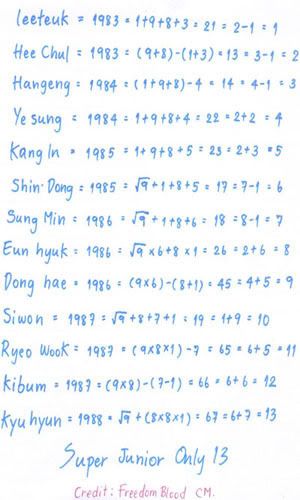 leeteuk = 1983 = 1+9+8+3 = 21 = 2-1 = 1
Hee Chul = 1983 = (9+8)-(1+3) = 13 = 3-1 = 2
Hangeng = 1984 = (1+9+8)-4 = 14 = 4-1 = 3
Ye sung = 1984 = 1+9+8+4 = 22 = 2+2 = 4
Kang In = 1985 = 1+9+8+5 = 23 = 2+3 = 5
Shin Dong = 1985 = √9+1+8+5 = 17 = 7-1 = 6
Sung Min = 1986 = √9+1+8+6 = 18 = 8-1 = 7
Eun hyuk = 1986 = √9×6+8×1 = 26 = 2+6 = 8
Dong hae = 1986 = (9×6)-(8+1) = 45 = 4+5 = 9
Siwon = 1987 = √9+8+7+1 = 19 = 1+9 = 10
Ryeo Wook = 1987 = (9×8×1)-7 = 65 = 6+5 = 11
Kibum = 1987 = (9×8)-(7-1) = 66 = 6+6 = 12
Kyu hyun = 1988 = √9+(8×8×1) = 67 = 6+7 = 13
Super Junior Only 13
Credit : Freedom Blood CM.